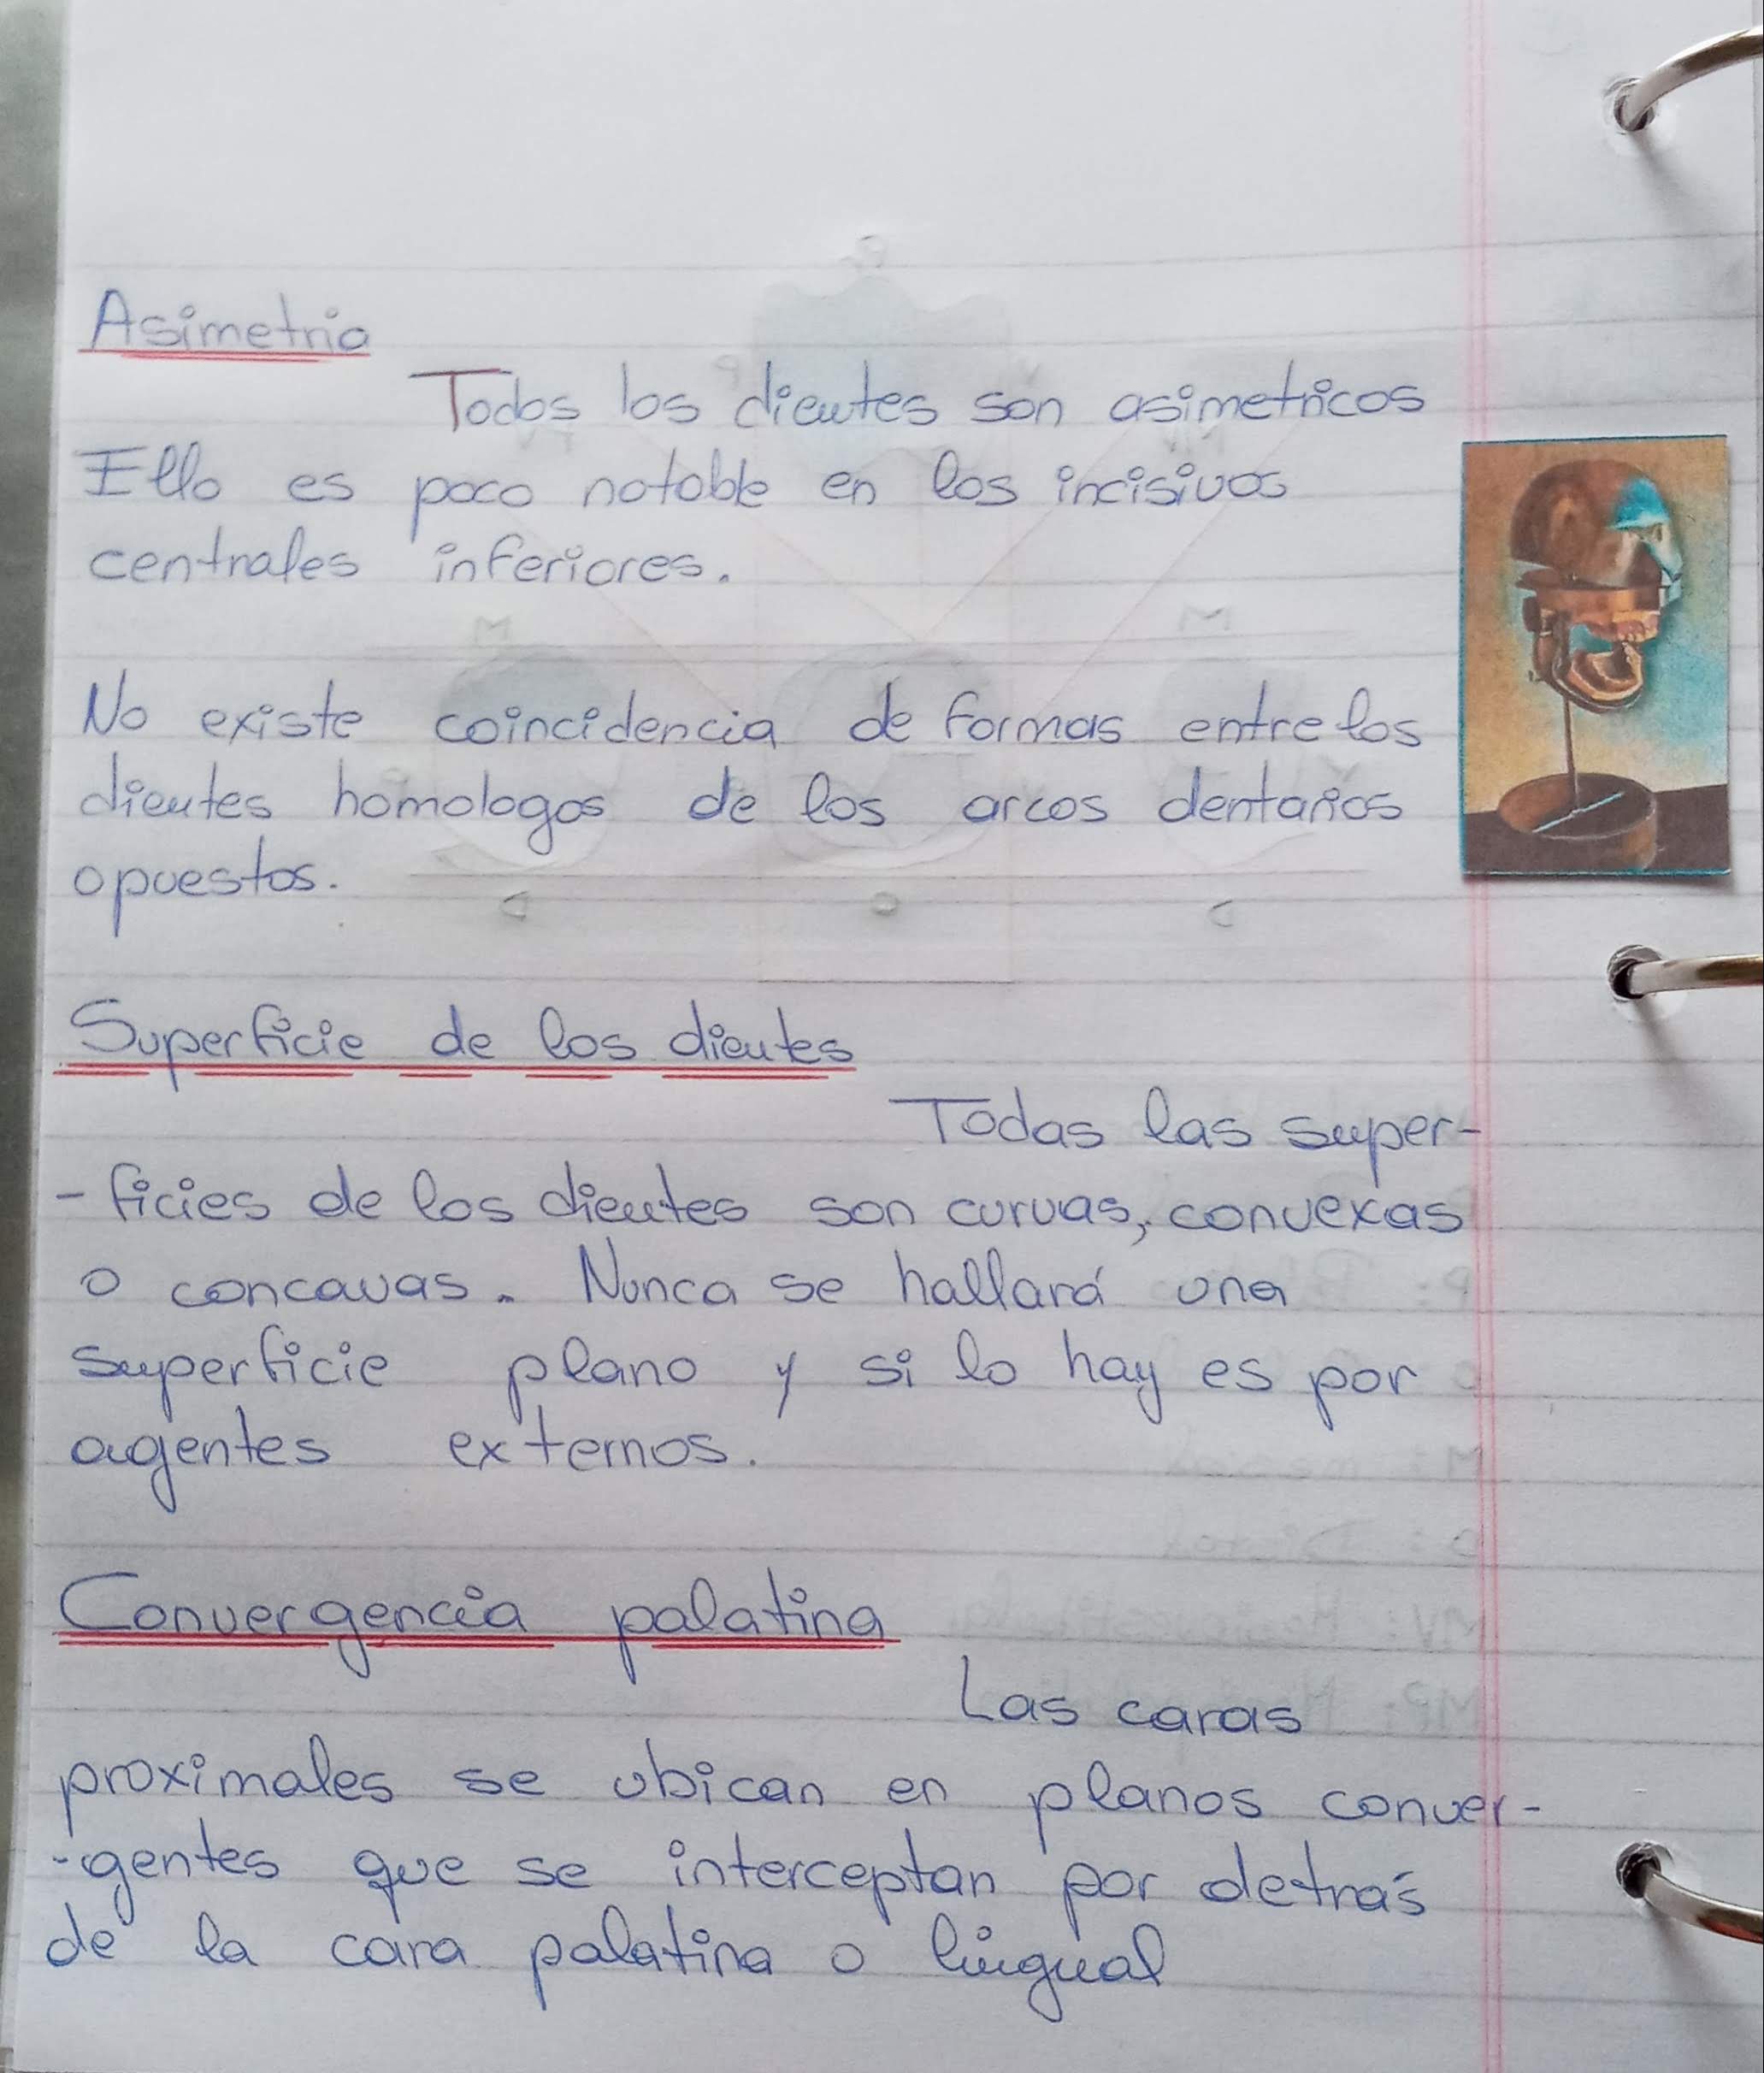 Asimetria
Todos los dientes son asimetricos
Ello es poco notable en los incisivos
centrales inferiores.
No existe coincidencia de formas entre los
dientes homologos de los arcos dentarios
opuestos.
Superficie de los dientes
Todas las super-
-ficies de los dientes son curvas, convexas
o concavas. Nunca se hallará una
superficie plano y si lo hay es por
agentes externos.
Convergencia palatina
Las caras
proximales se ubican en planos conver-
-gentes que se interceptan por detrás
de la cara palatina o lingual